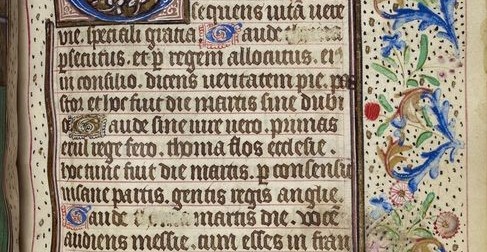 sequens vitā vere
vie. speciali gratia Gaude thoma
psecutus. et p regem allocutus. en
in consilio. dicens veritatem pie. pas
stor. et hoc fuit die martis sine dubi
o Gaude sine iure vero. primas
exul rege fero. thoma flos ecclesie.
hoc tunc fuit die martis. p consensū
insane partis. gentis regis anglie.
Gaude martis die. voce
audiens messie. cum esses in fran